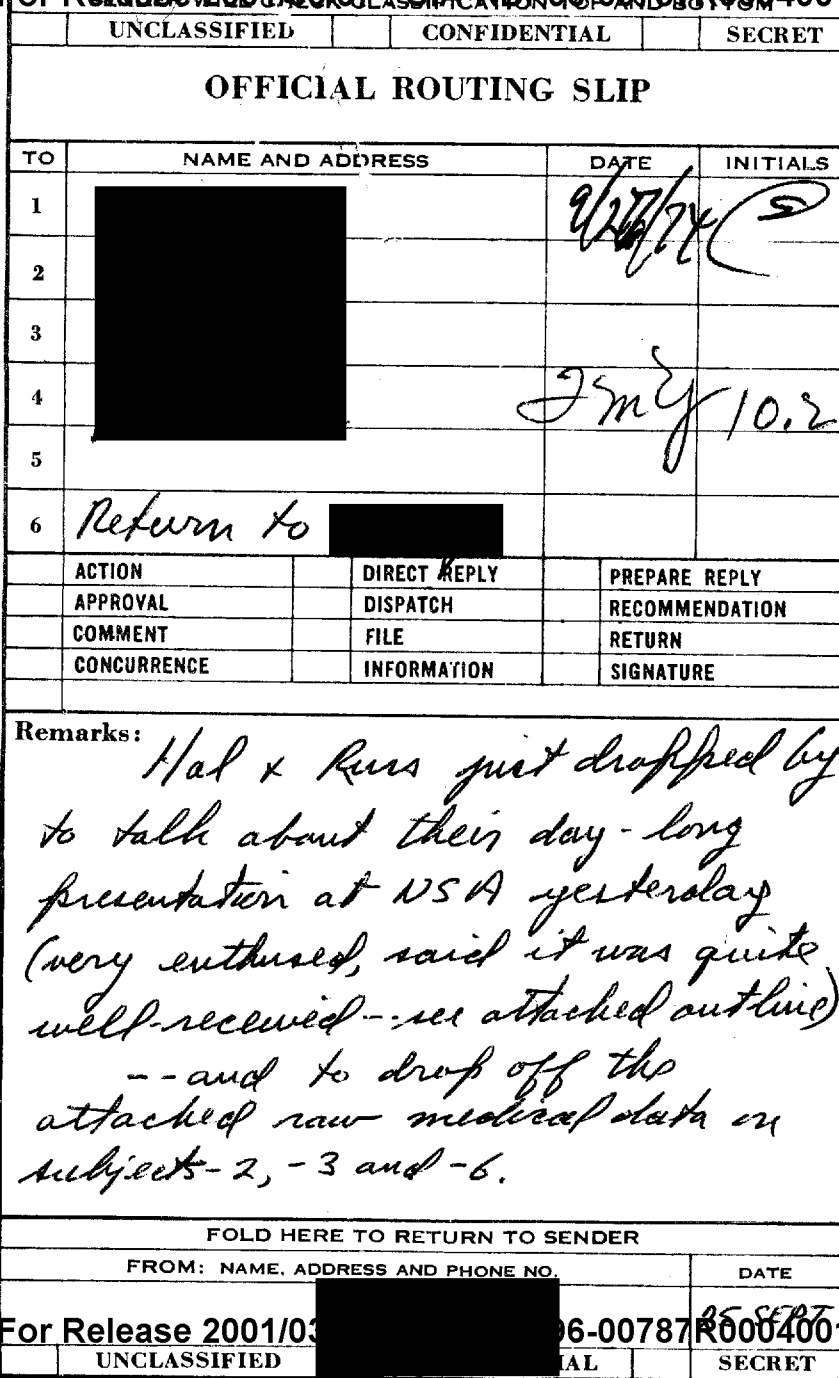 UNCLASSIFIED CONFIDENTIAL SECRET
OFFICIAL ROUTING SLIP
TO NAME AND ADDRESS DATE INITIALS
1
2
3
4 10.2
5
6 Return to
ACTION DIRECT REPLY PREPARE REPLY
APPROVAL DISPATCH RECOMMENDATION
COMMENT FILE RETURN
CONCURRENCE INFORMATION SIGNATURE
Remarks:
Hal & Russ just dropped by
to talk about their day-long
presentation at NSA yesterday
(very enthused, said it was quite
well-received -- see attached outline)
-- and to drop off the
attached raw medical data on
subjects -2, -3 and -6.
FOLD HERE TO RETURN TO SENDER
FROM: NAME, ADDRESS AND PHONE NO. DATE
25 SEPT
For Release 2001/03 96-00787R0004001
UNCLASSIFIED IAL SECRET